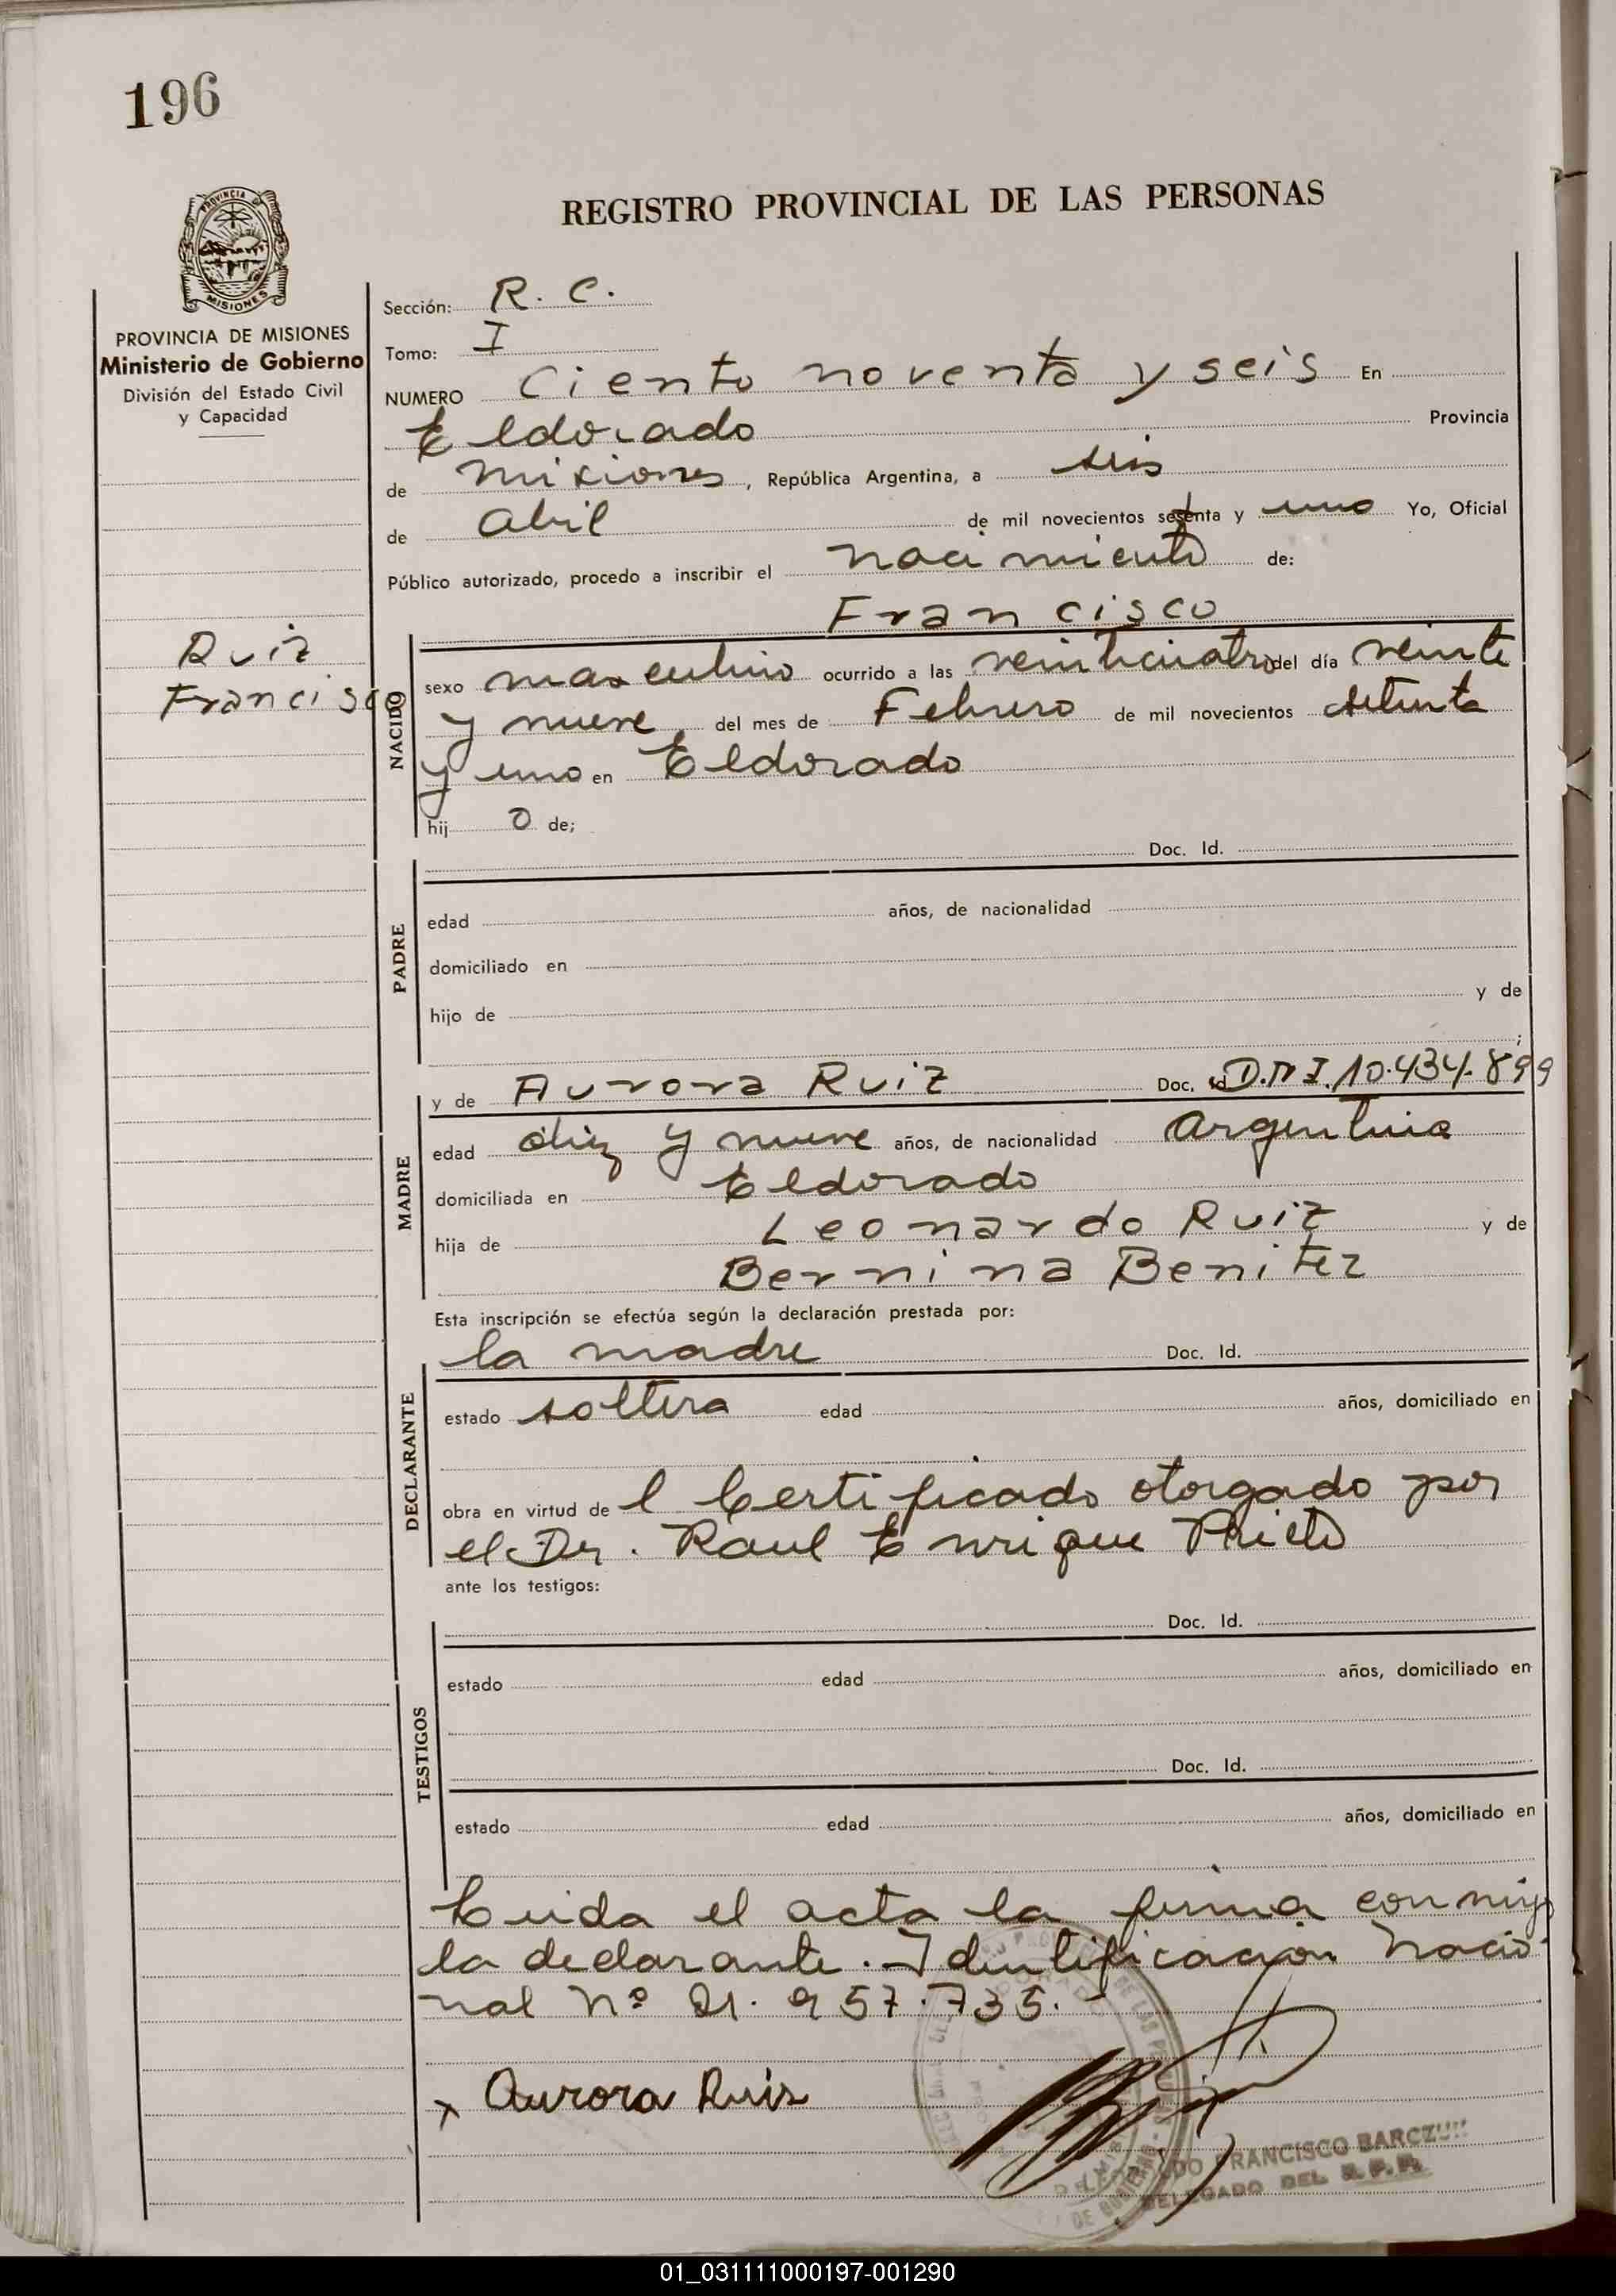 196
REGISTRO PROVINCIAL DE LAS PERSONAS
PROVINCIA DE
MISIONES
PROVINCIA DE MISIONES
Ministerio de Gobierno
División del Estado Civil
y Capacidad
Ruiz
Francisco
Sección: R. C.
Tomo: I
NUMERO Ciento noventa y seis En
Eldorado Provincia
de Misiones, República Argentina, a seis
de Abril de mil novecientos setenta y uno Yo, Oficial
Público autorizado, procedo a inscribir el nacimiento de:
Francisco
NACIDO
sexo masculino ocurrido a las veinticuatro del día veinte
y nueve del mes de Febrero de mil novecientos setenta
y uno en Eldorado
hij o de;
Doc. Id.
PADRE
edad años, de nacionalidad
domiciliado en
hijo de y de
;
y de Aurora Ruiz Doc. Id D.N I. 10.434.899
MADRE
edad diez y nueve años, de nacionalidad argentina
domiciliada en Eldorado
hija de Leonardo Ruiz y de
Bernina Benitez
Esta inscripción se efectúa según la declaración prestada por:
la madre Doc. Id.
DECLARANTE
estado soltera edad años, domiciliado en
obra en virtud de l Certificado otorgado por
el Dr. Raul Enrique Prieto
ante los testigos:
Doc. Id.
TESTIGOS
estado edad años, domiciliado en
Doc. Id.
estado edad años, domiciliado en
Leida el acta la firma conmigo
la declarante. Identificacion Nacio-
nal Nº 21.957.735.
x Aurora Ruiz
FRANCISCO
DELEGADO DEL R.P.P.
01_031111000197-001290